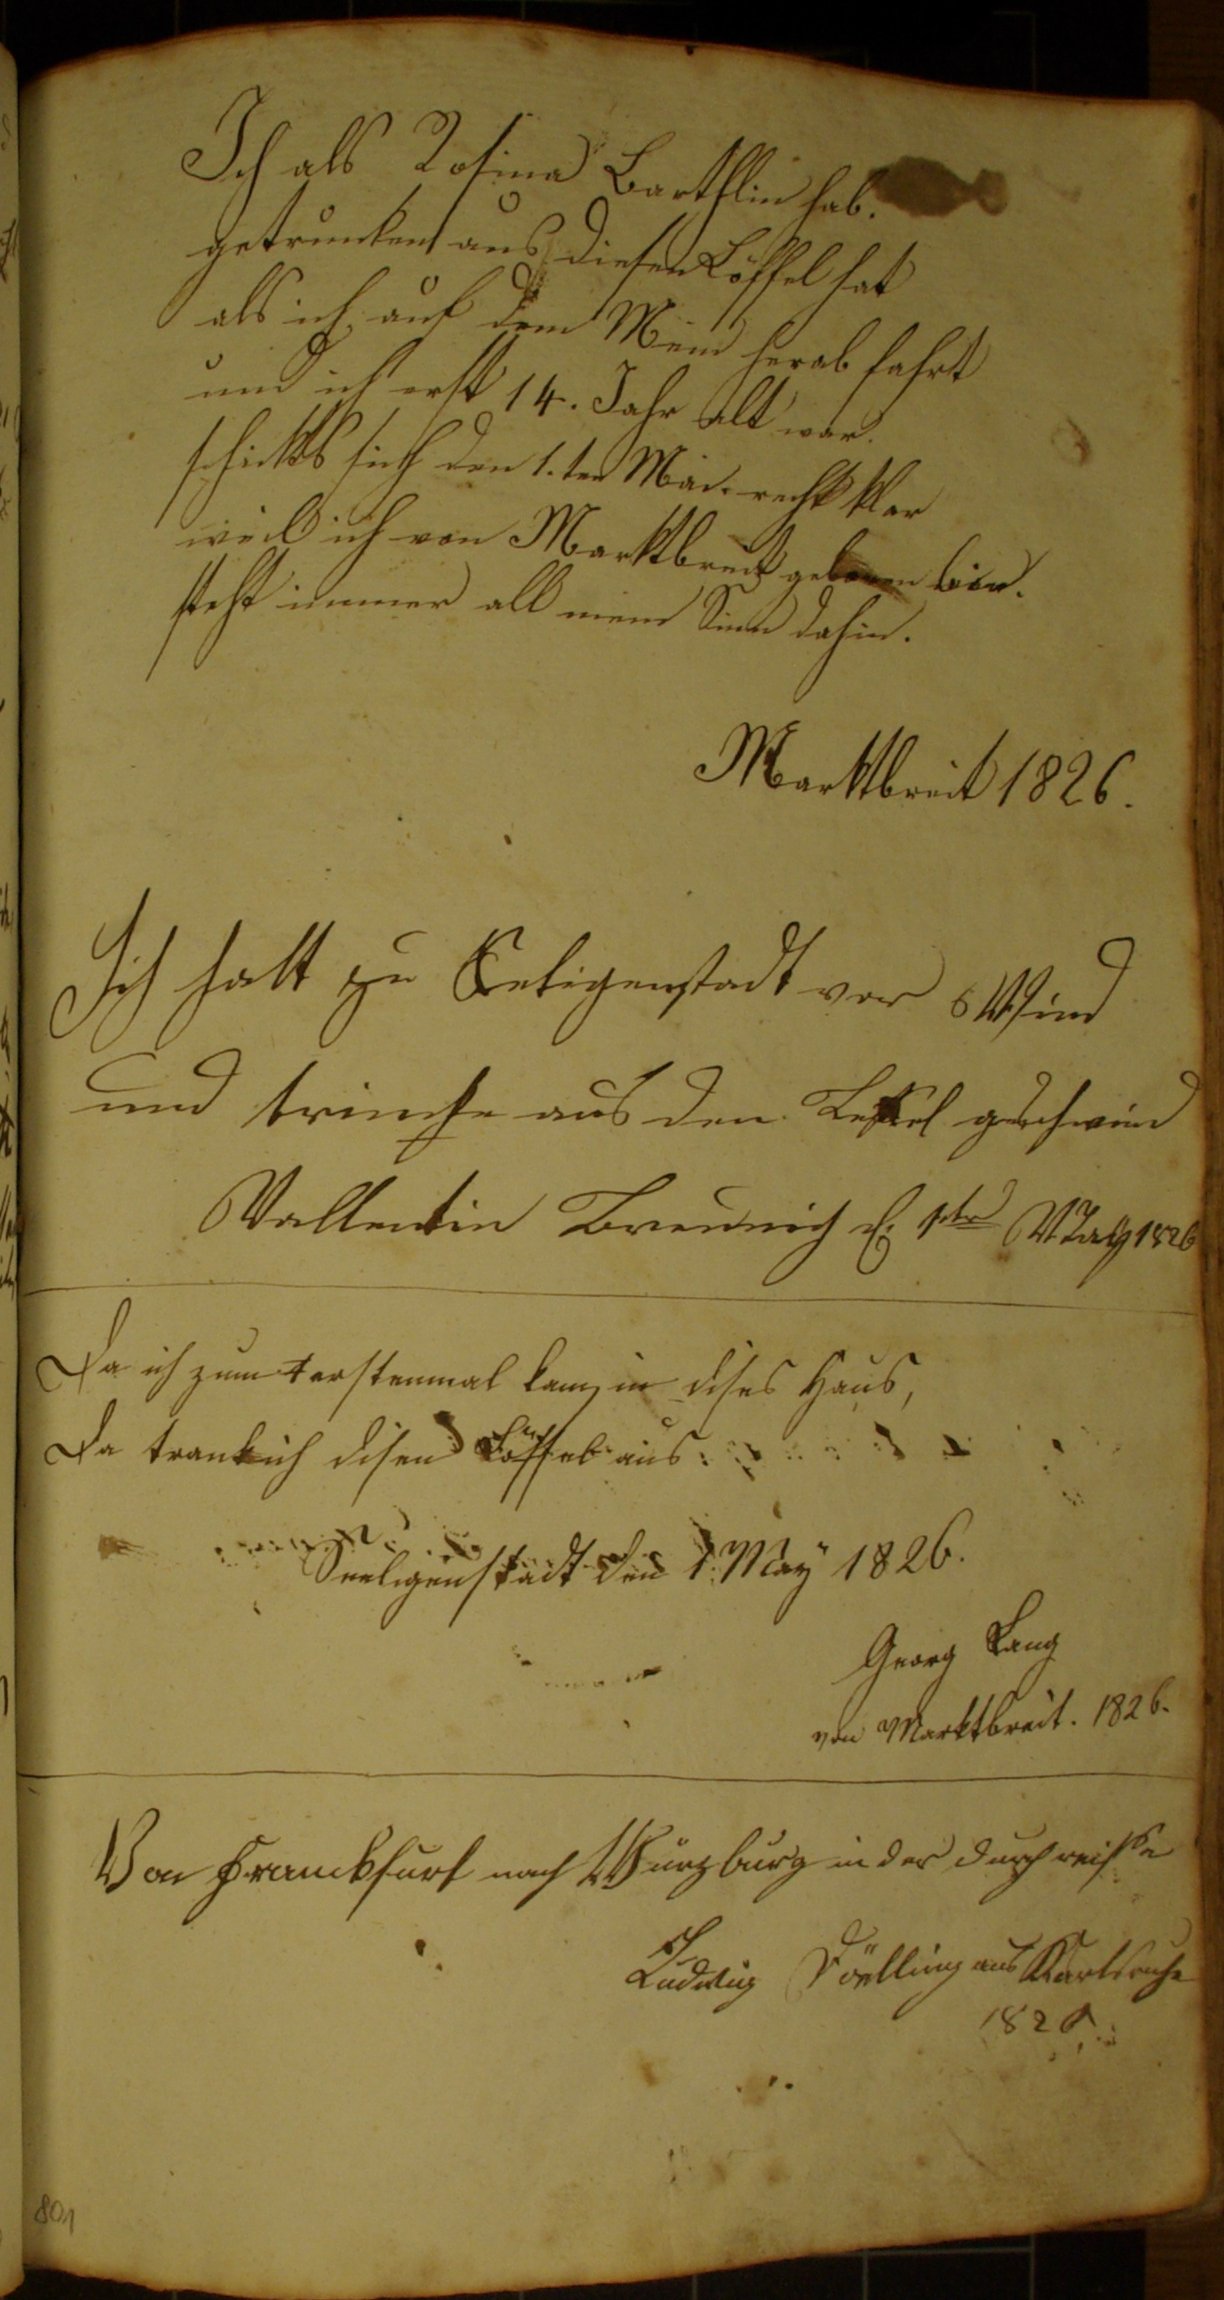 Ich als Rosina Barthlin hab.
getruncken aus diesen Löffel hat
als ich auf dem Mein herab fahrt
und ich erst 14. Jahr alt war.
schickts sich den 1.ten Mai. recht klar
weil ich von Marktbreit geboren bin.
steht immer all mein Sinn dahin.
Marktbreit 1826.
Ich halt zu Seligenstadt vor Wind
und trincke aus den Leffel geschwind
Vallentin Breunig d. 1ten May 1826
Da ich zum erstenmal kam, in dises Haus,
Da trank ich disen Löffel aus.
Seeligenstadt den 1. May 1826.
Georg Lang
von Marktbreit. 1826.
Von Franckfurt nach Würzburg in der durchreisse
Ludwig Döelling aus Karlsruhe
1826.
801